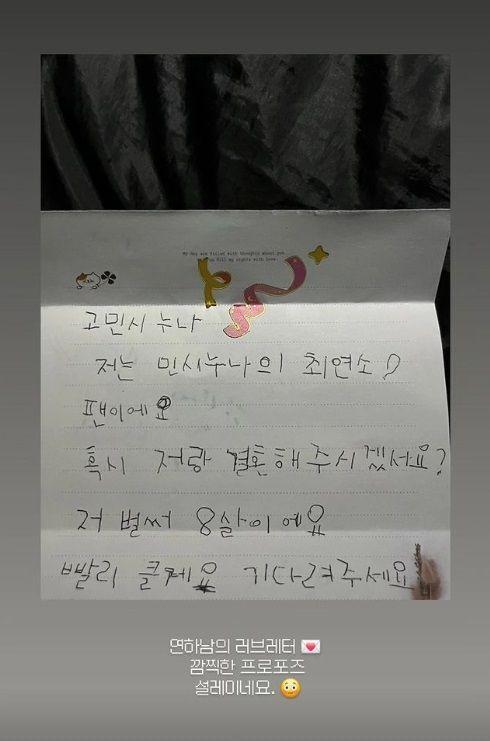 My day are filled with thoughts about you
You fill my nights with love.
고민시 누나
저는 민시누나의 최연소
팬이에요
혹시 저랑 결혼해주시겠서요?
저 벌써 8살이에요
빨리 클께요 기다려주세요
연하남의 러브레터 💌
깜찍한 프로포즈
설레이네요. 😳